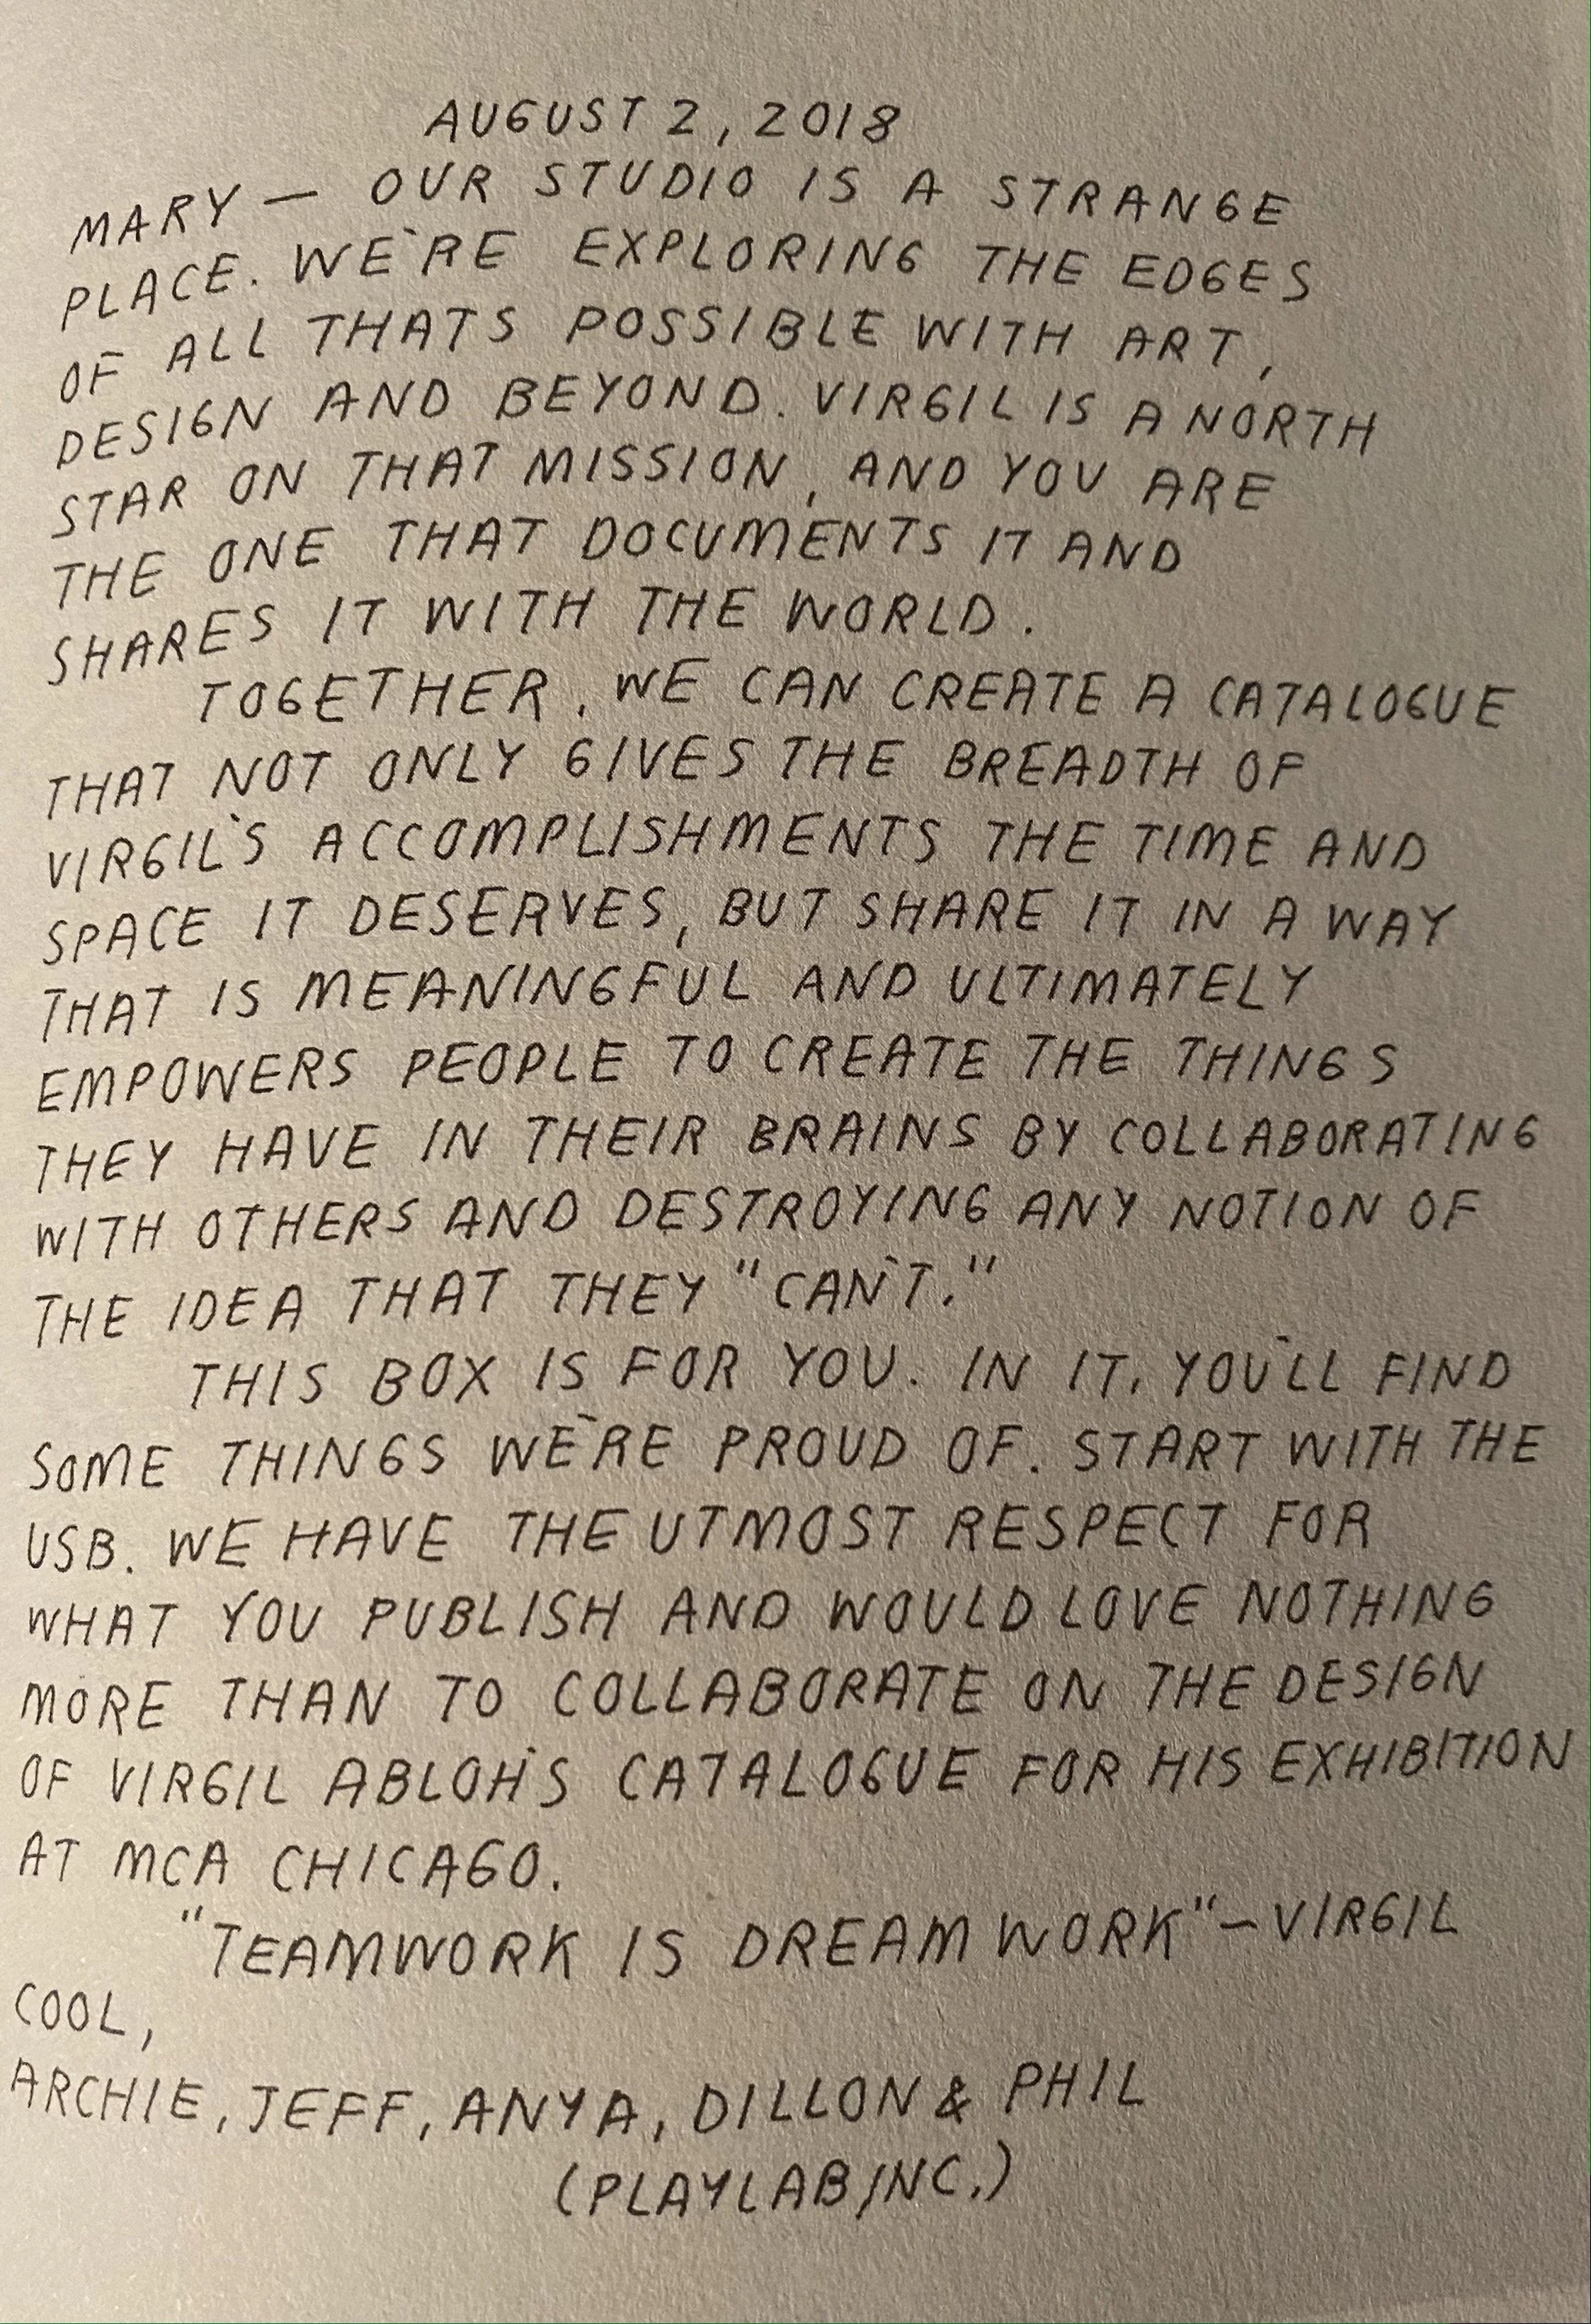 AUGUST 2, 2018
MARY — OUR STUDIO IS A STRANGE
PLACE. WE'RE EXPLORING THE EDGES
OF ALL THATS POSSIBLE WITH ART,
DESIGN AND BEYOND. VIRGIL IS A NORTH
STAR ON THAT MISSION, AND YOU ARE
THE ONE THAT DOCUMENTS IT AND
SHARES IT WITH THE WORLD.
TOGETHER, WE CAN CREATE A CATALOGUE
THAT NOT ONLY GIVES THE BREADTH OF
VIRGIL'S ACCOMPLISHMENTS THE TIME AND
SPACE IT DESERVES, BUT SHARE IT IN A WAY
THAT IS MEANINGFUL AND ULTIMATELY
EMPOWERS PEOPLE TO CREATE THE THINGS
THEY HAVE IN THEIR BRAINS BY COLLABORATING
WITH OTHERS AND DESTROYING ANY NOTION OF
THE IDEA THAT THEY "CAN'T."
THIS BOX IS FOR YOU. IN IT, YOU'LL FIND
SOME THINGS WE'RE PROUD OF. START WITH THE
USB. WE HAVE THE UTMOST RESPECT FOR
WHAT YOU PUBLISH AND WOULD LOVE NOTHING
MORE THAN TO COLLABORATE ON THE DESIGN
OF VIRGIL ABLOH'S CATALOGUE FOR HIS EXHIBITION
AT MCA CHICAGO.
"TEAMWORK IS DREAM WORK" — VIRGIL
COOL,
ARCHIE, JEFF, ANYA, DILLON & PHIL
(PLAYLAB, INC.)